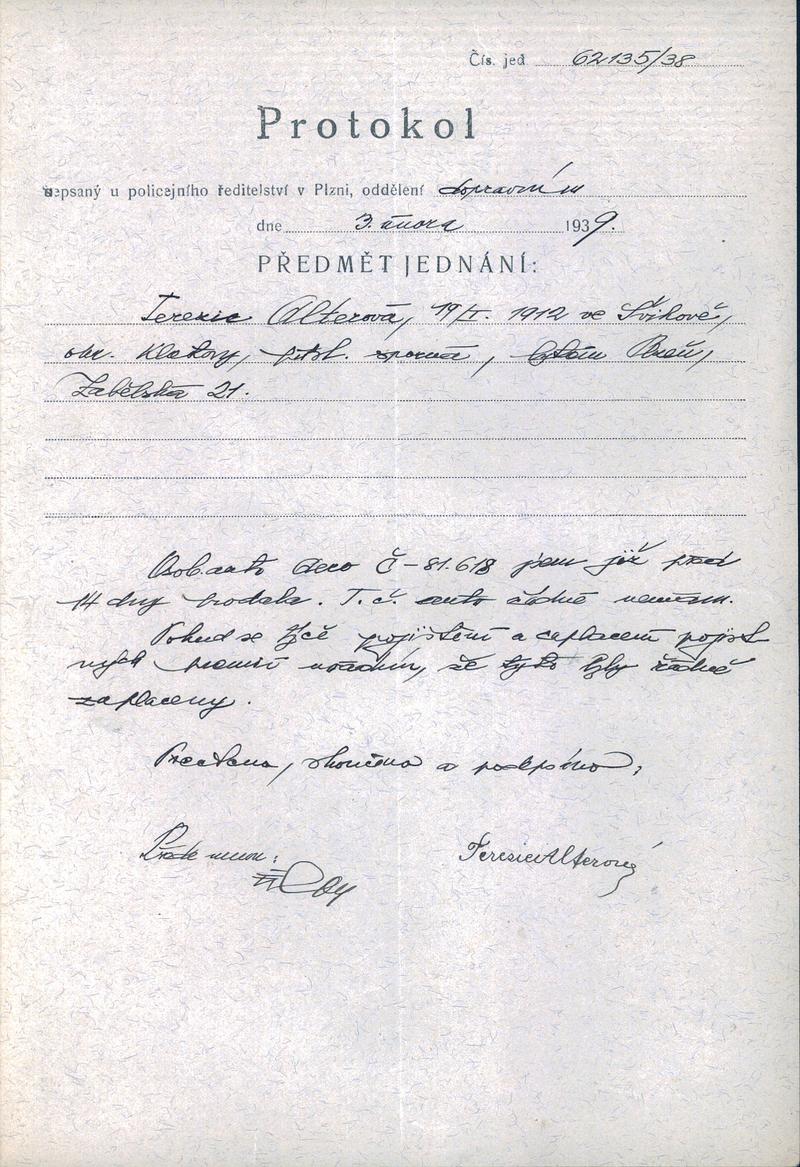 Čís. jed. 62135/38
Protokol
sepsaný u policejního ředitelství v Plzni, oddělení dopravním
dne 3. února 1939.
PŘEDMĚT JEDNÁNÍ:
Terezie Alterová, 19/I. 1912 ve Švihově,
okr. Klatovy, přísl. sporná, bytem Plzeň,
Zábělská 21.
Osob. auto Aero Č-81.618 jsem již před
14 dny prodala. T. č. auto žádné nemám.
Pokud se týče pojištění a zaplacení pojist
ných premií uvádím, že tyto byly řádně
zaplaceny.
Přečteno, skončeno a podepsáno:
TerezieAlterová